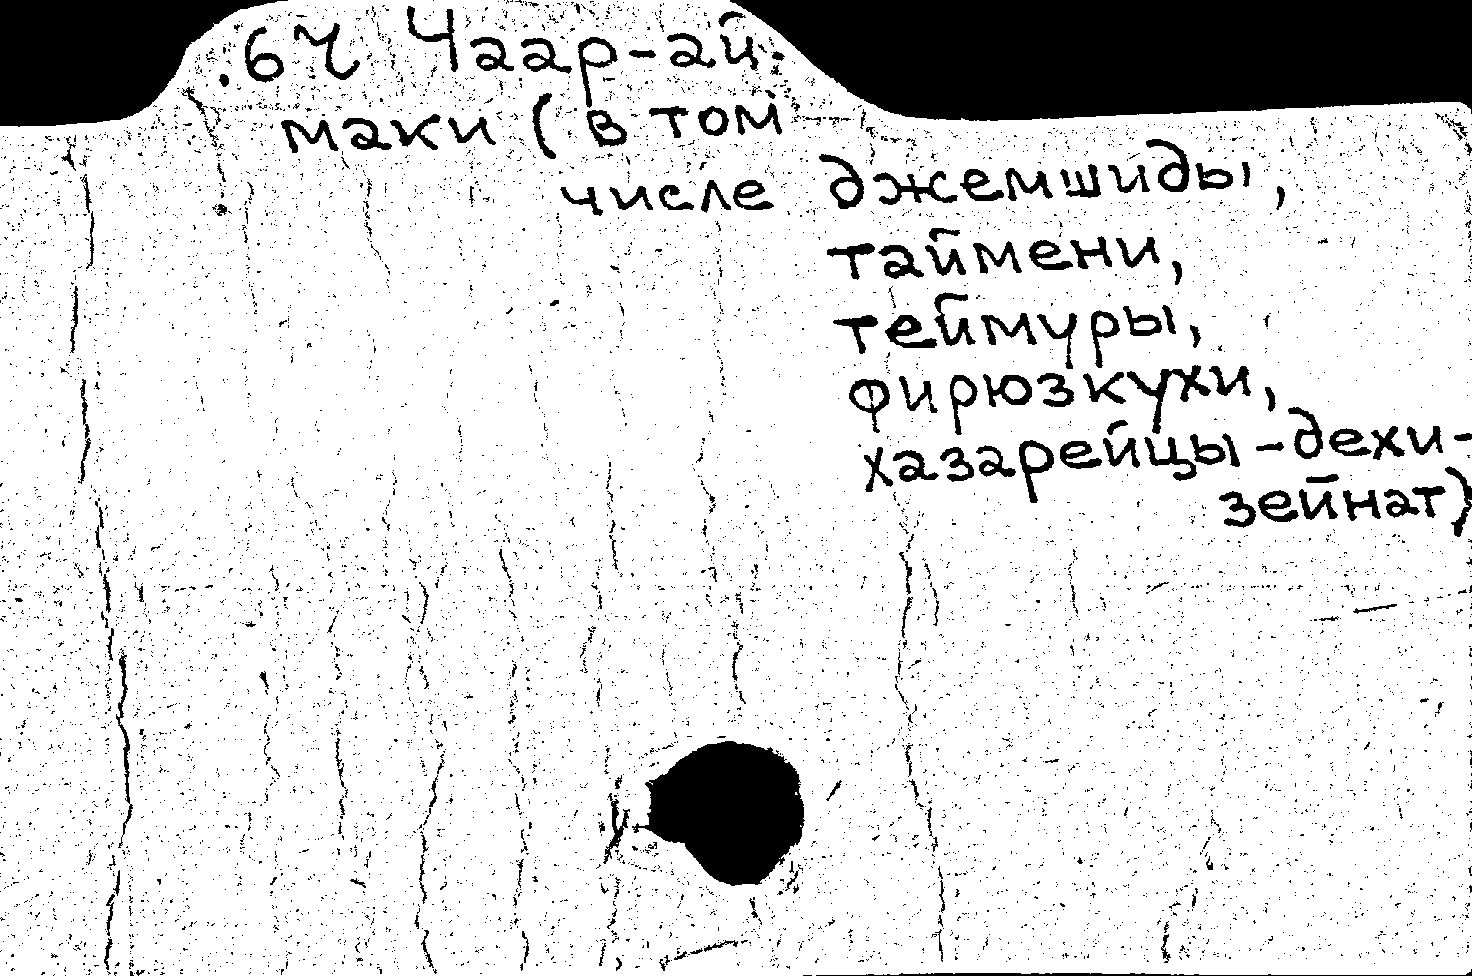 .6Ч Чаар-ай-
маки (в том
числе джемшиды,
таймени,
теймуры,
фирюзкухи,
хазарейцы-дехи-
зейнат)